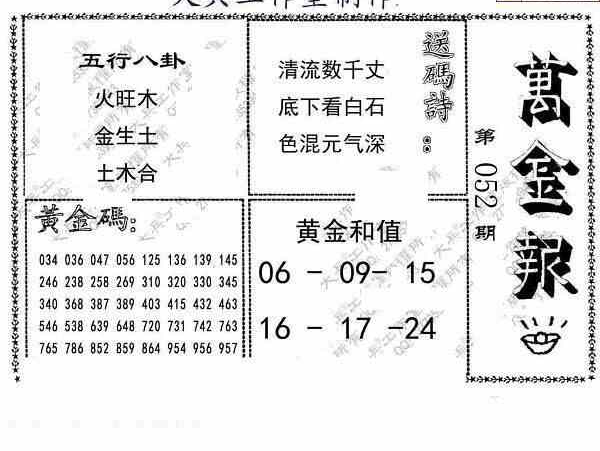 萬金報
第052期
五行八卦
火旺木
金生土
土木合
送碼詩：
清流数千丈
底下看白石
色混元气深
黃金碼：
034 036 047 056 125 136 139 145
246 238 258 269 310 320 330 345
340 368 387 389 403 415 432 463
546 538 639 648 720 731 742 763
765 786 852 859 864 954 956 957
黄金和值
06 - 09- 15
16 - 17 -24